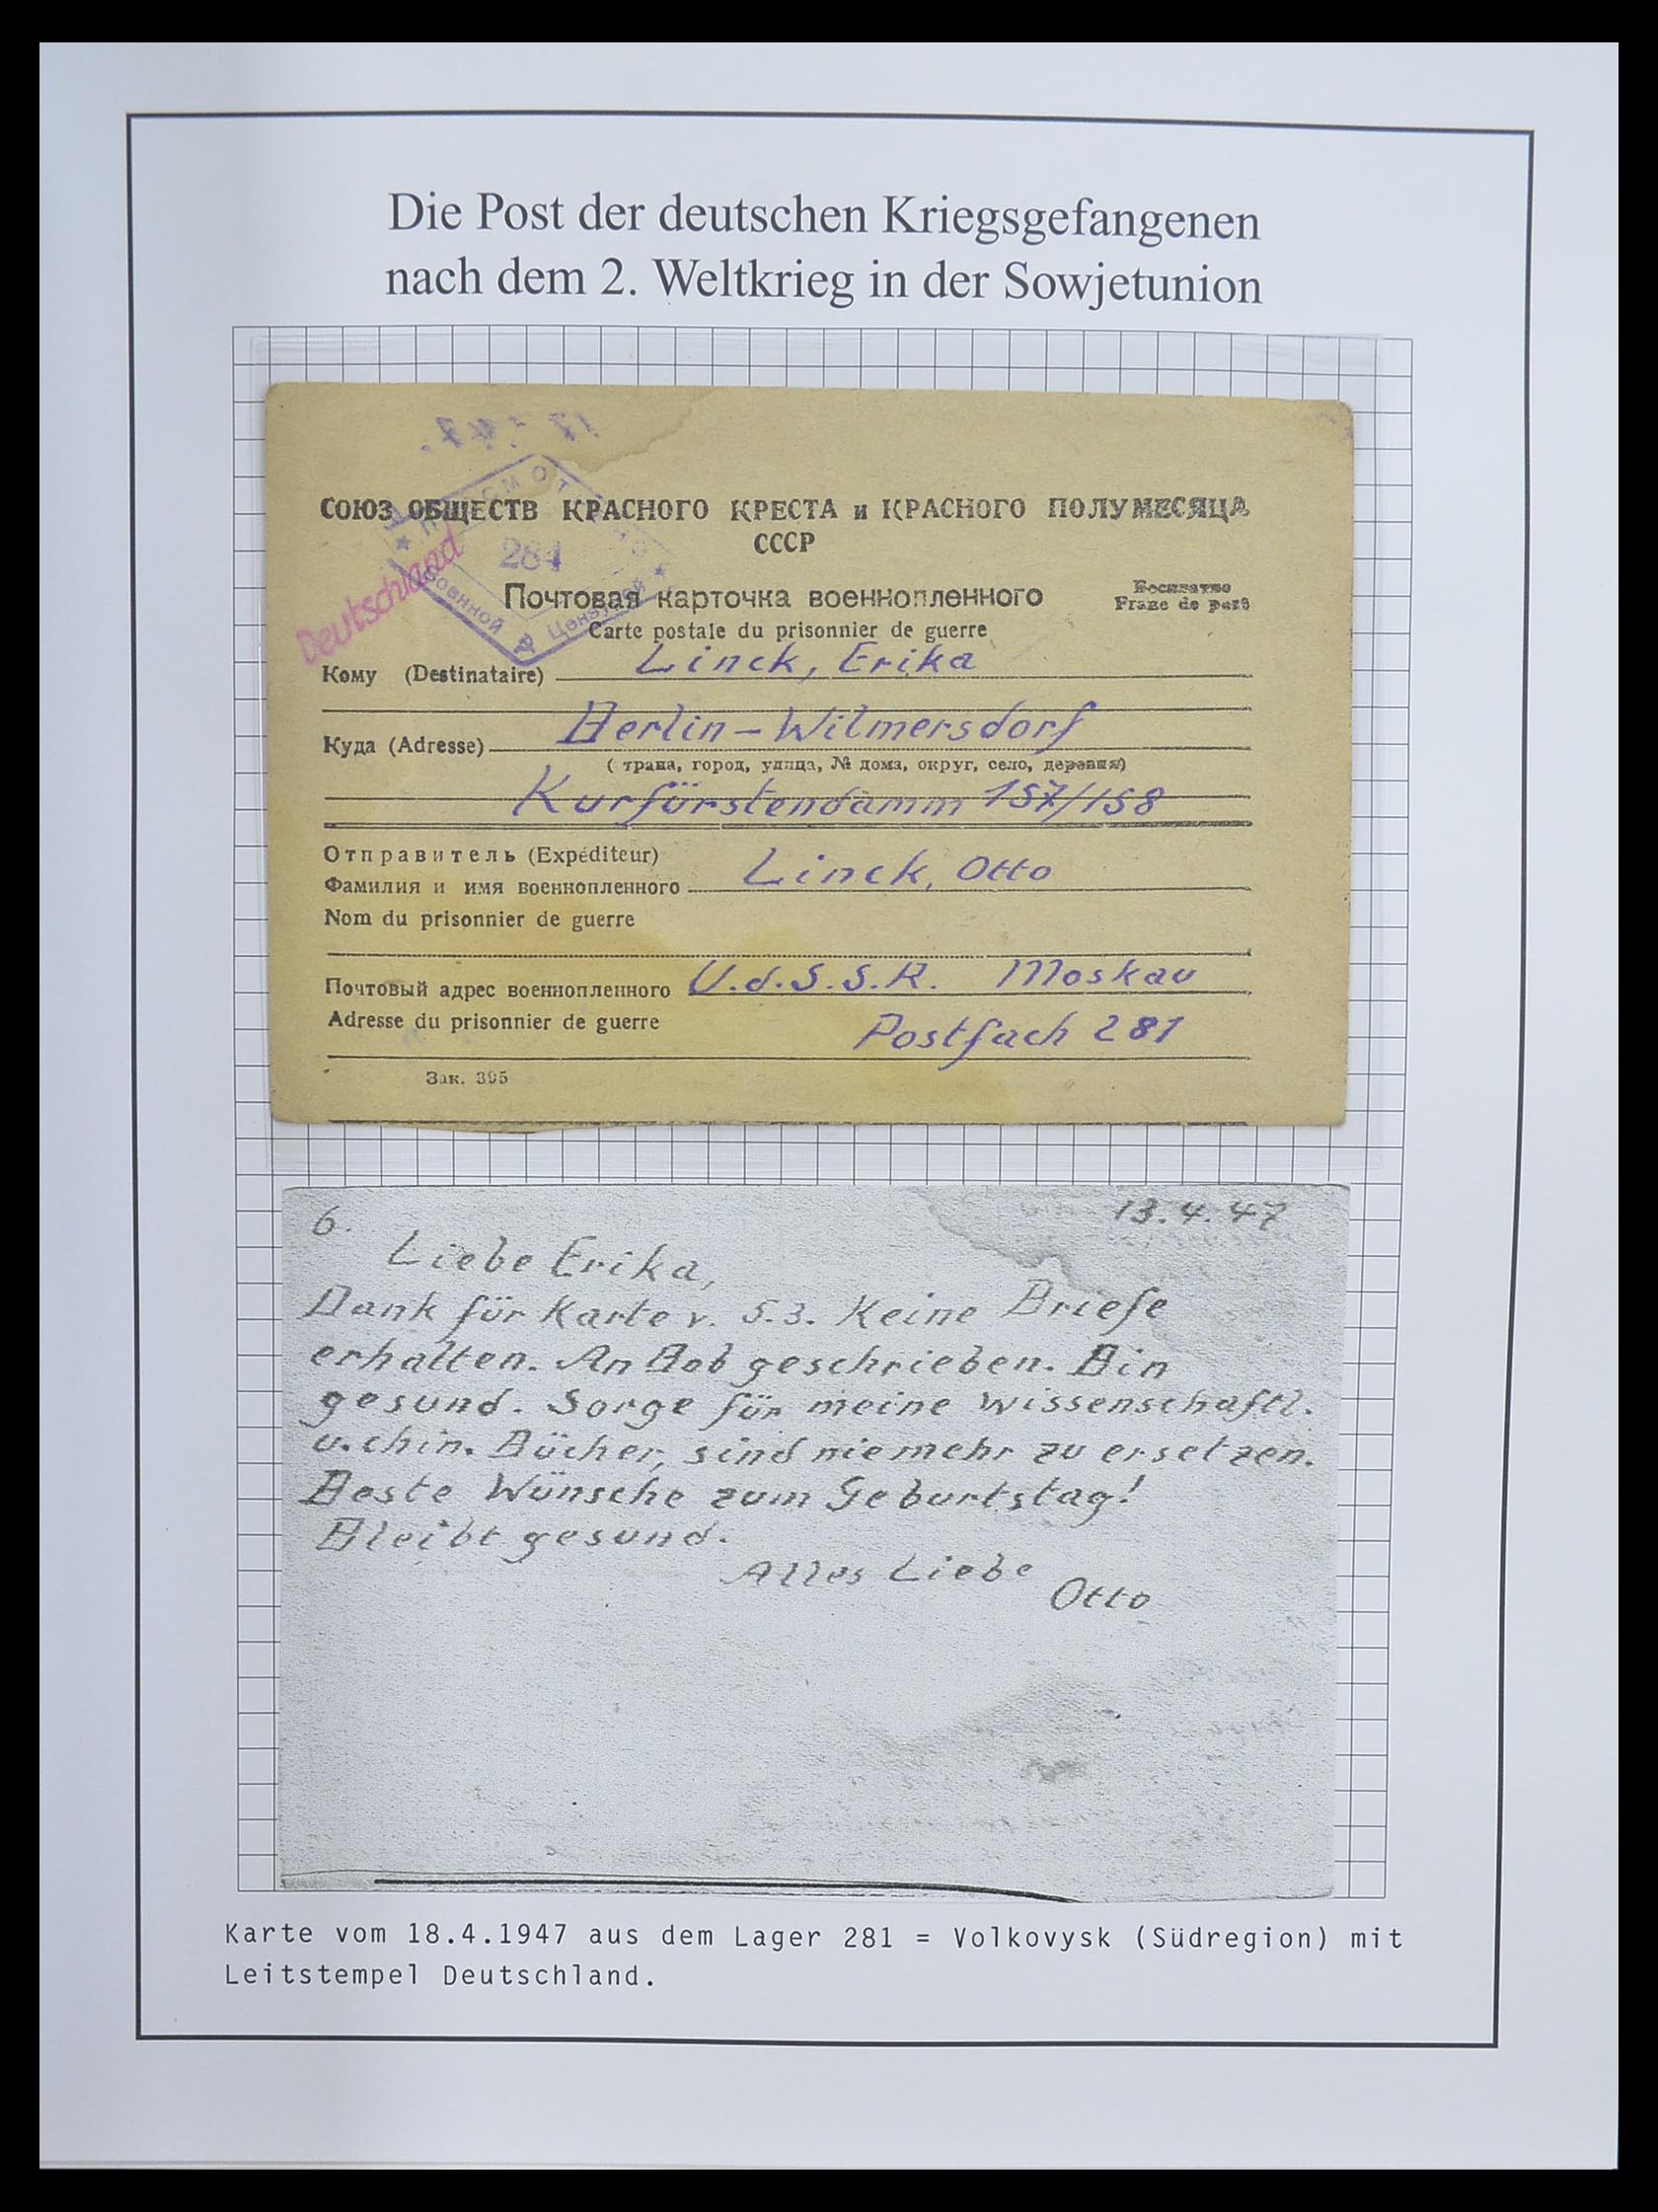 Die Post der deutschen Kriegsgefangenen
nach dem 2. Weltkrieg in der Sowjetunion
СОЮЗ ОБЩЕСТВ КРАСНОГО КРЕСТА и КРАСНОГО ПОЛУМЕСЯЦА
СССР
284
Deutschland
Военной Цензурой
Почтовая карточка военнопленного
Бесплатно
Franc de port
Carte postale du prisonnier de guerre
Кому (Destinataire) Linck, Erika
Куда (Adresse) Berlin - Wilmersdorf
( трана, город, улица, № дома, округ, село, деревня)
Kurfürstendamm 157/158
Отправитель (Expéditeur)
Фамилия и имя военнопленного Linck, Otto
Nom du prisonnier de guerre
Почтовый адрес военнопленного U.d.S.S.R. Moskau
Adresse du prisonnier de guerre Postfach 281
Зак. 395
6. 13.4.47
Liebe Erika,
Dank für Karte v. 5.3. Keine Briefe
erhalten. An Bob geschrieben. Bin
gesund. Sorge für meine wissenschaftl.
u. chin. Bücher, sind nie mehr zu ersetzen.
Beste Wünsche zum Geburtstag!
Bleibt gesund.
Alles Liebe
Otto
Karte vom 18.4.1947 aus dem Lager 281 = Volkovysk (Südregion) mit
Leitstempel Deutschland.